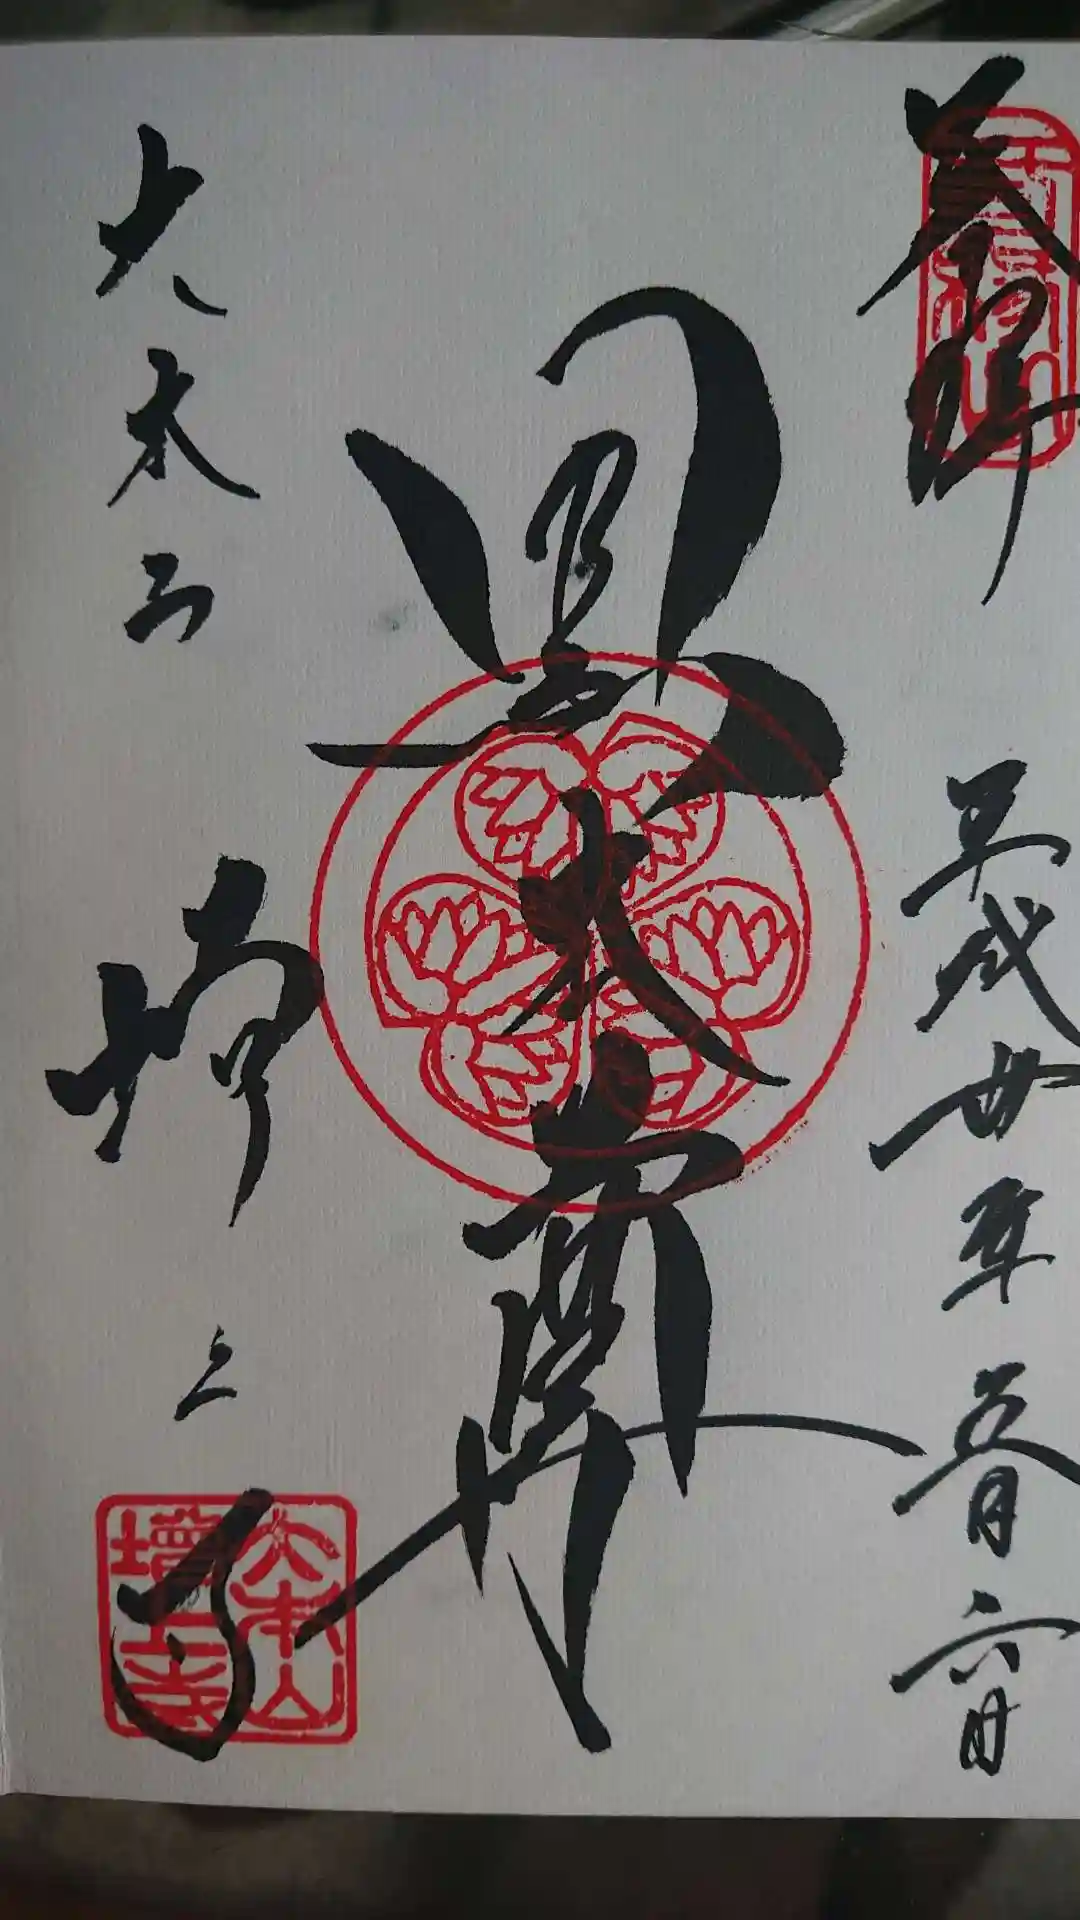 奉拝
平成廿年五月六日
黒本尊
大本山
増上寺
大本山
増上寺